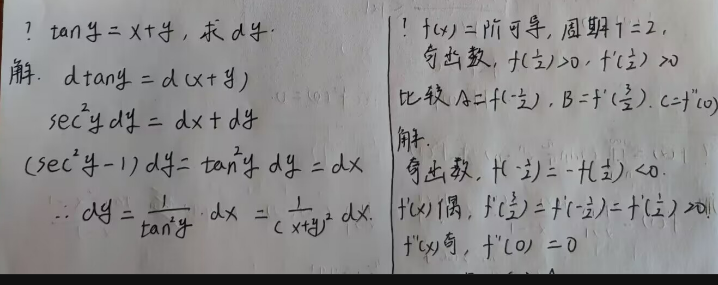 ? tan y = x+y, 求 dy.
解. d tan y = d(x+y)
sec²y dy = dx + dy
(sec²y-1) dy = tan²y dy = dx
∴ dy = 1/tan²y · dx = 1/(x+y)² dx.
? f(x)二阶可导, 周期T=2,
奇函数, f(1/2)>0, f'(1/2)>0
比较 A=f(-1/2), B=f'(3/2). C=f''(0)
解.
奇函数, f(-1/2)=-f(1/2)<0.
f'(x)偶, f'(3/2)=f'(-1/2)=f'(1/2)>0
f''(x)奇, f''(0)=0